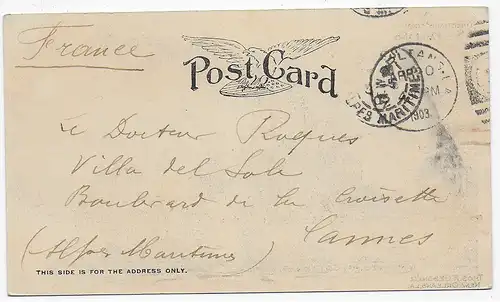 France
Post Card
1903
ALPES MARITIMES
Le Docteur Roques
Villa del Sole
Boulevard de la Croisette
Cannes
(Alpes Maritimes)
THIS SIDE IS FOR THE ADDRESS ONLY.